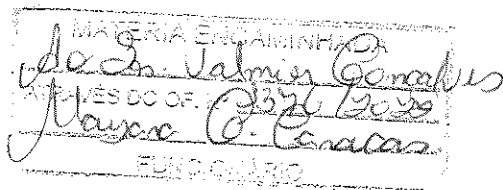 MATÉRIA ENCAMINHADA
Ao Sr. Valmier Gonçalves
ATRAVÉS DO OF.
Mayara C. Caracas
FUNCIONÁRIO